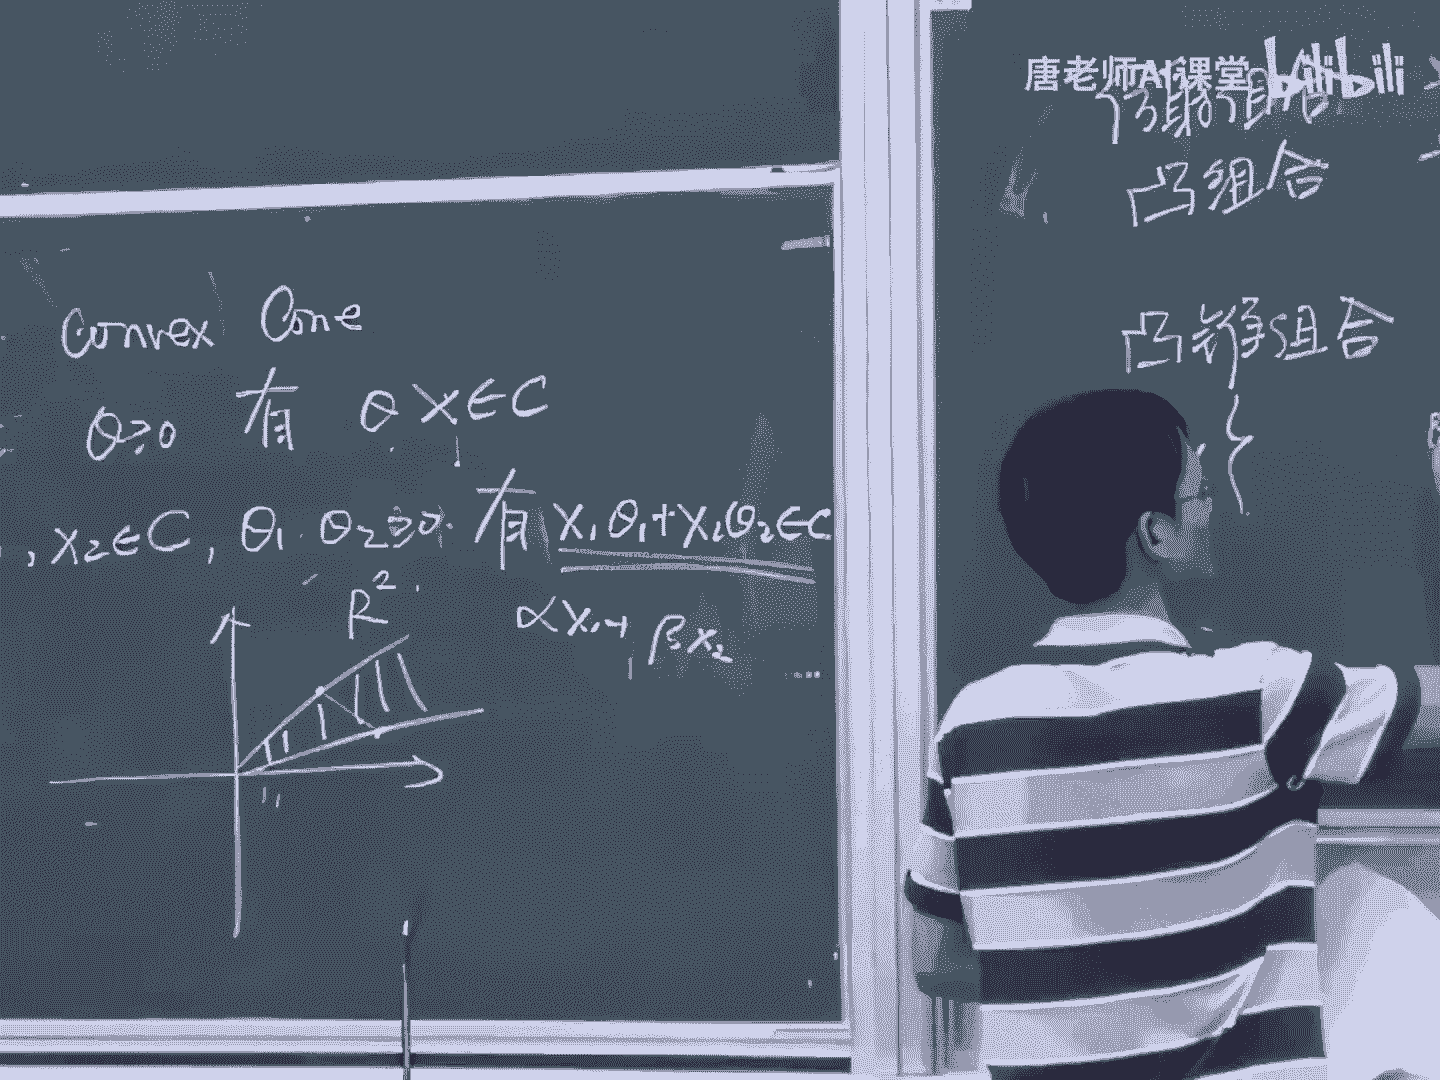 Convex Cone
θ≥0 有 θX∈C
, x₂∈C, θ₁ θ₂≥0 有 x₁θ₁+x₂θ₂∈C
R²
αx₁+βx₂
唐老师AI课堂 bilibili
仿射组合
凸组合
凸锥组合